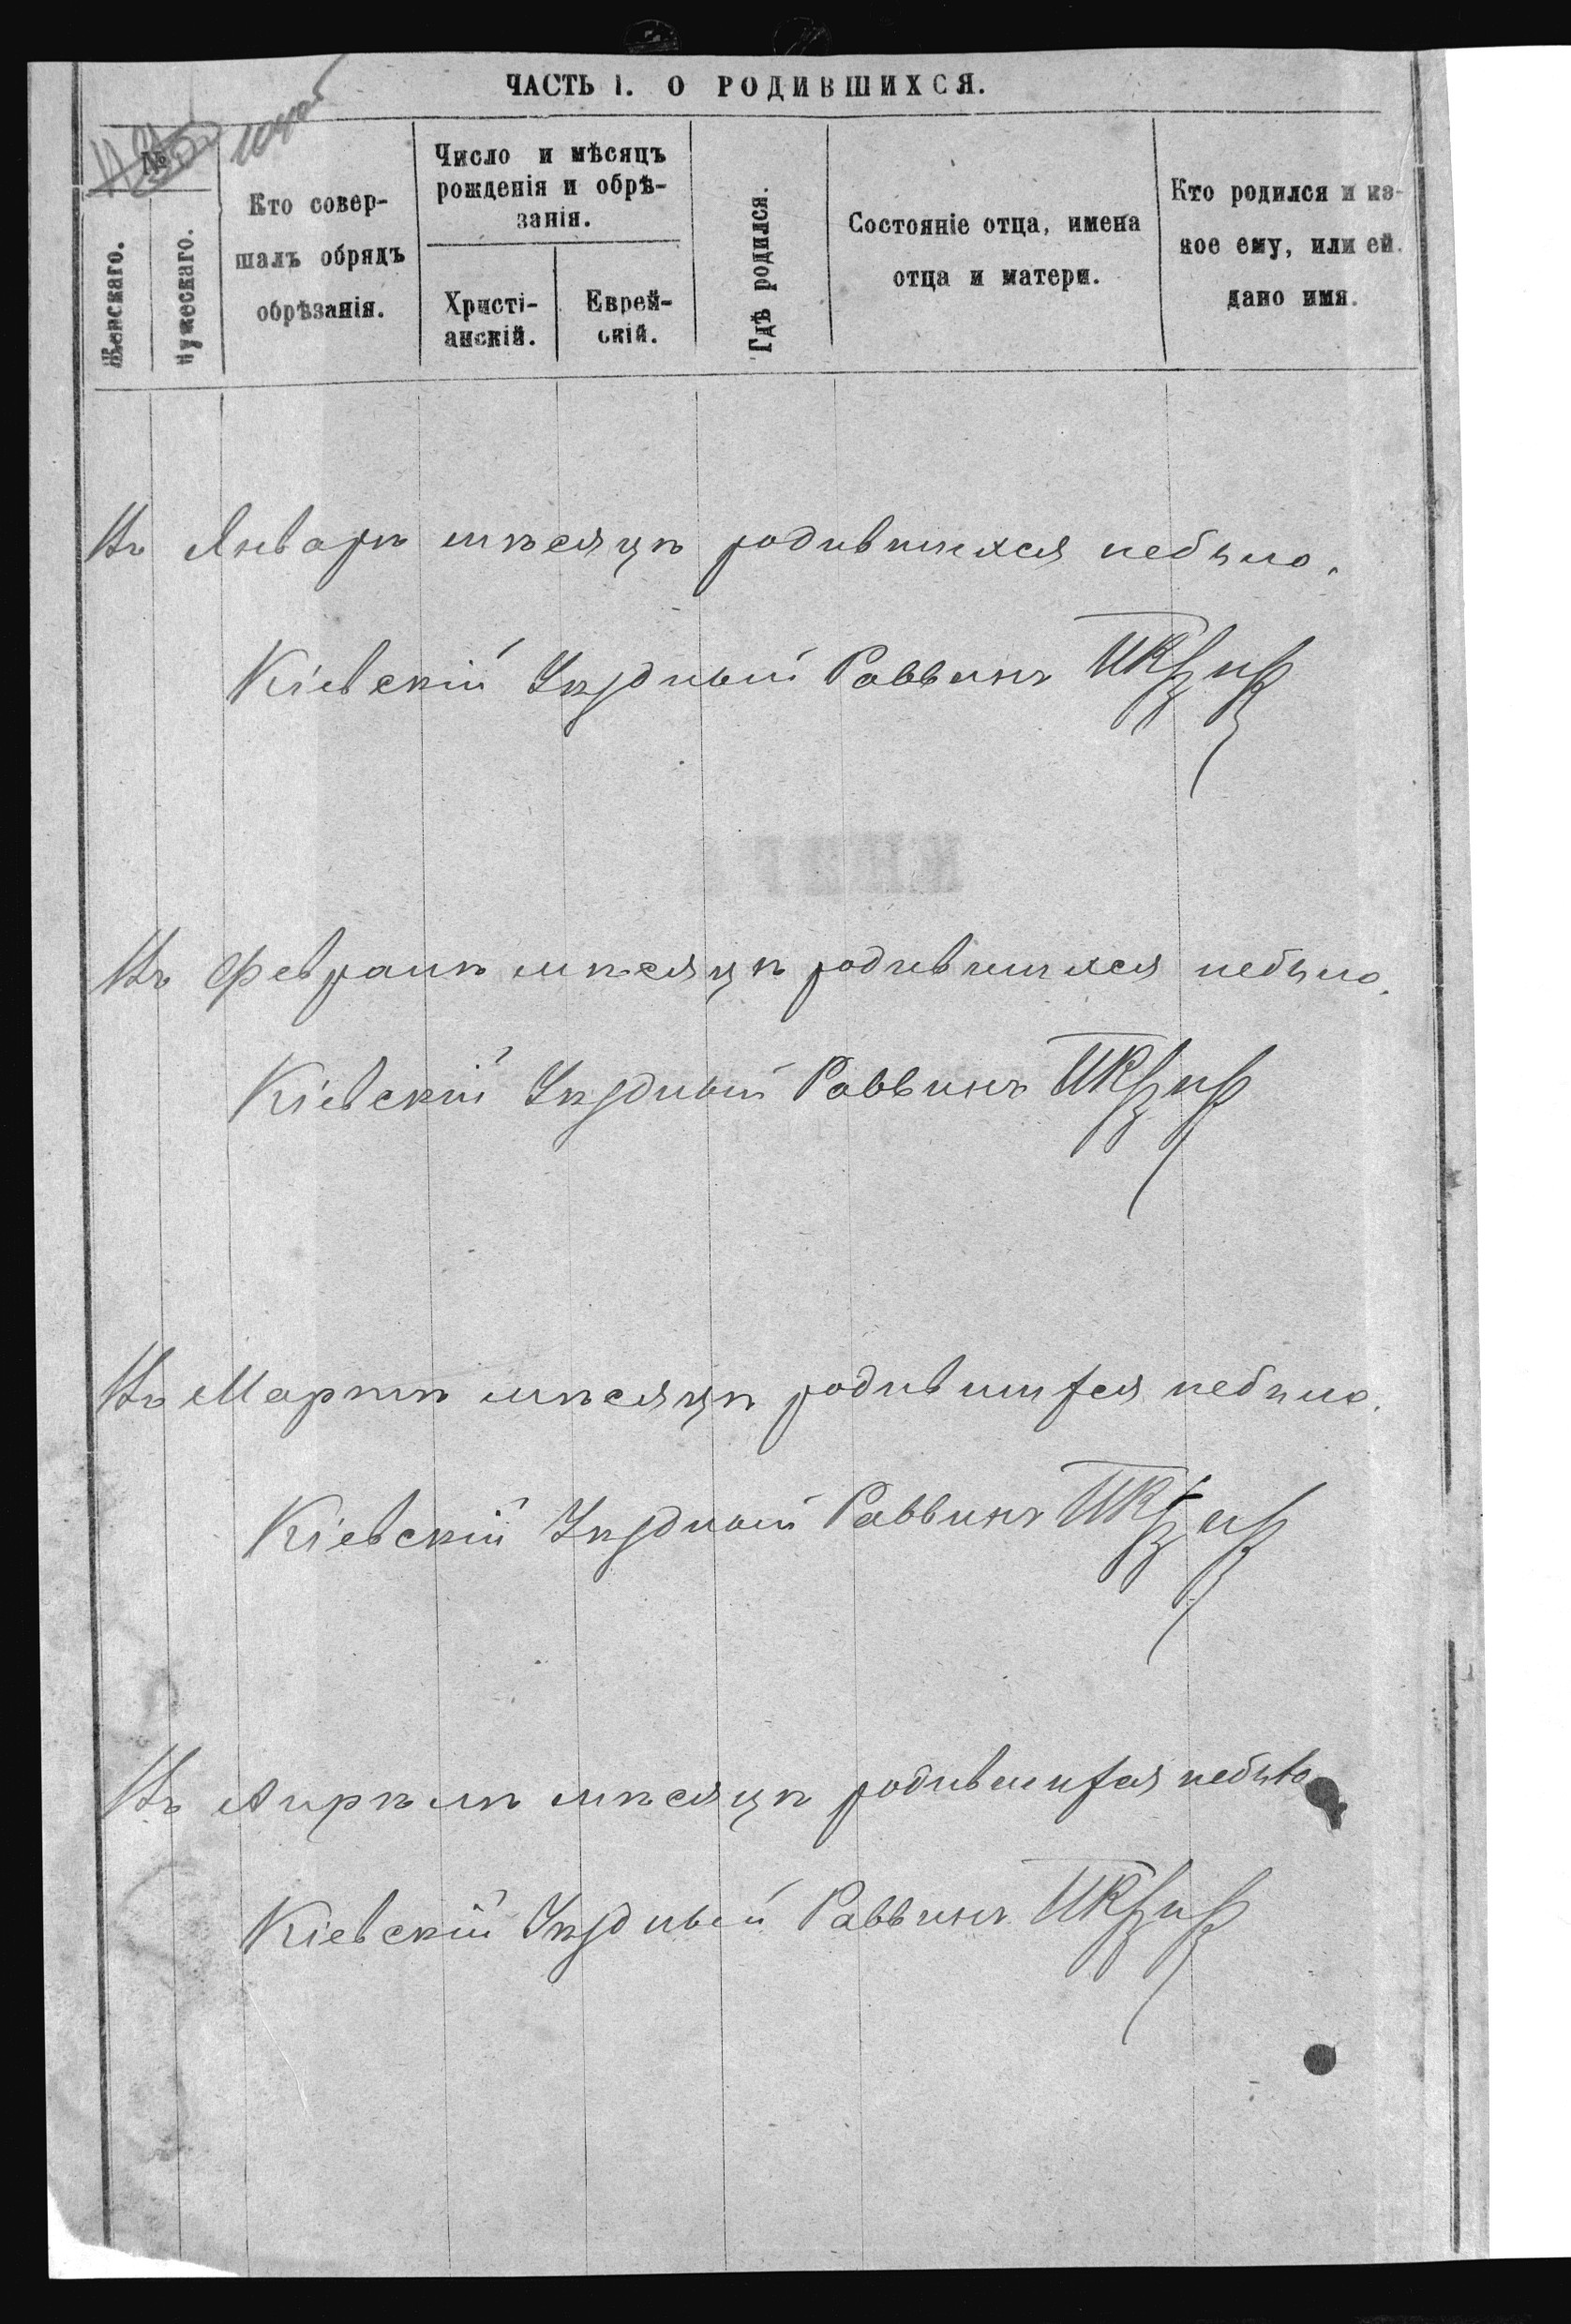 ЧАСТЬ I. О РОДИВШИХСЯ.
№
Женскаго.
Мужескаго.
Кто совер-
шалъ обрядъ
обрѣзанія.
Число и мѣсяцъ
рожденія и обрѣ-
занія.
Христі-
анскій.
Еврей-
скій.
Гдѣ родился.
Состояніе отца, имена
отца и матери.
Кто родился и ка-
кое ему, или ей
дано имя.
Въ Январѣ мѣсяцѣ родившихся небыло.
Кіевскій Уѣздный Раввинъ
Въ Февралѣ мѣсяцѣ родившихся небыло.
Кіевскій Уѣздный Раввинъ
Въ Мартѣ мѣсяцѣ родившихся небыло.
Кіевскій Уѣздный Раввинъ
Въ Апрѣлѣ мѣсяцѣ родившихся небыло
Кіевскій Уѣздный Раввинъ